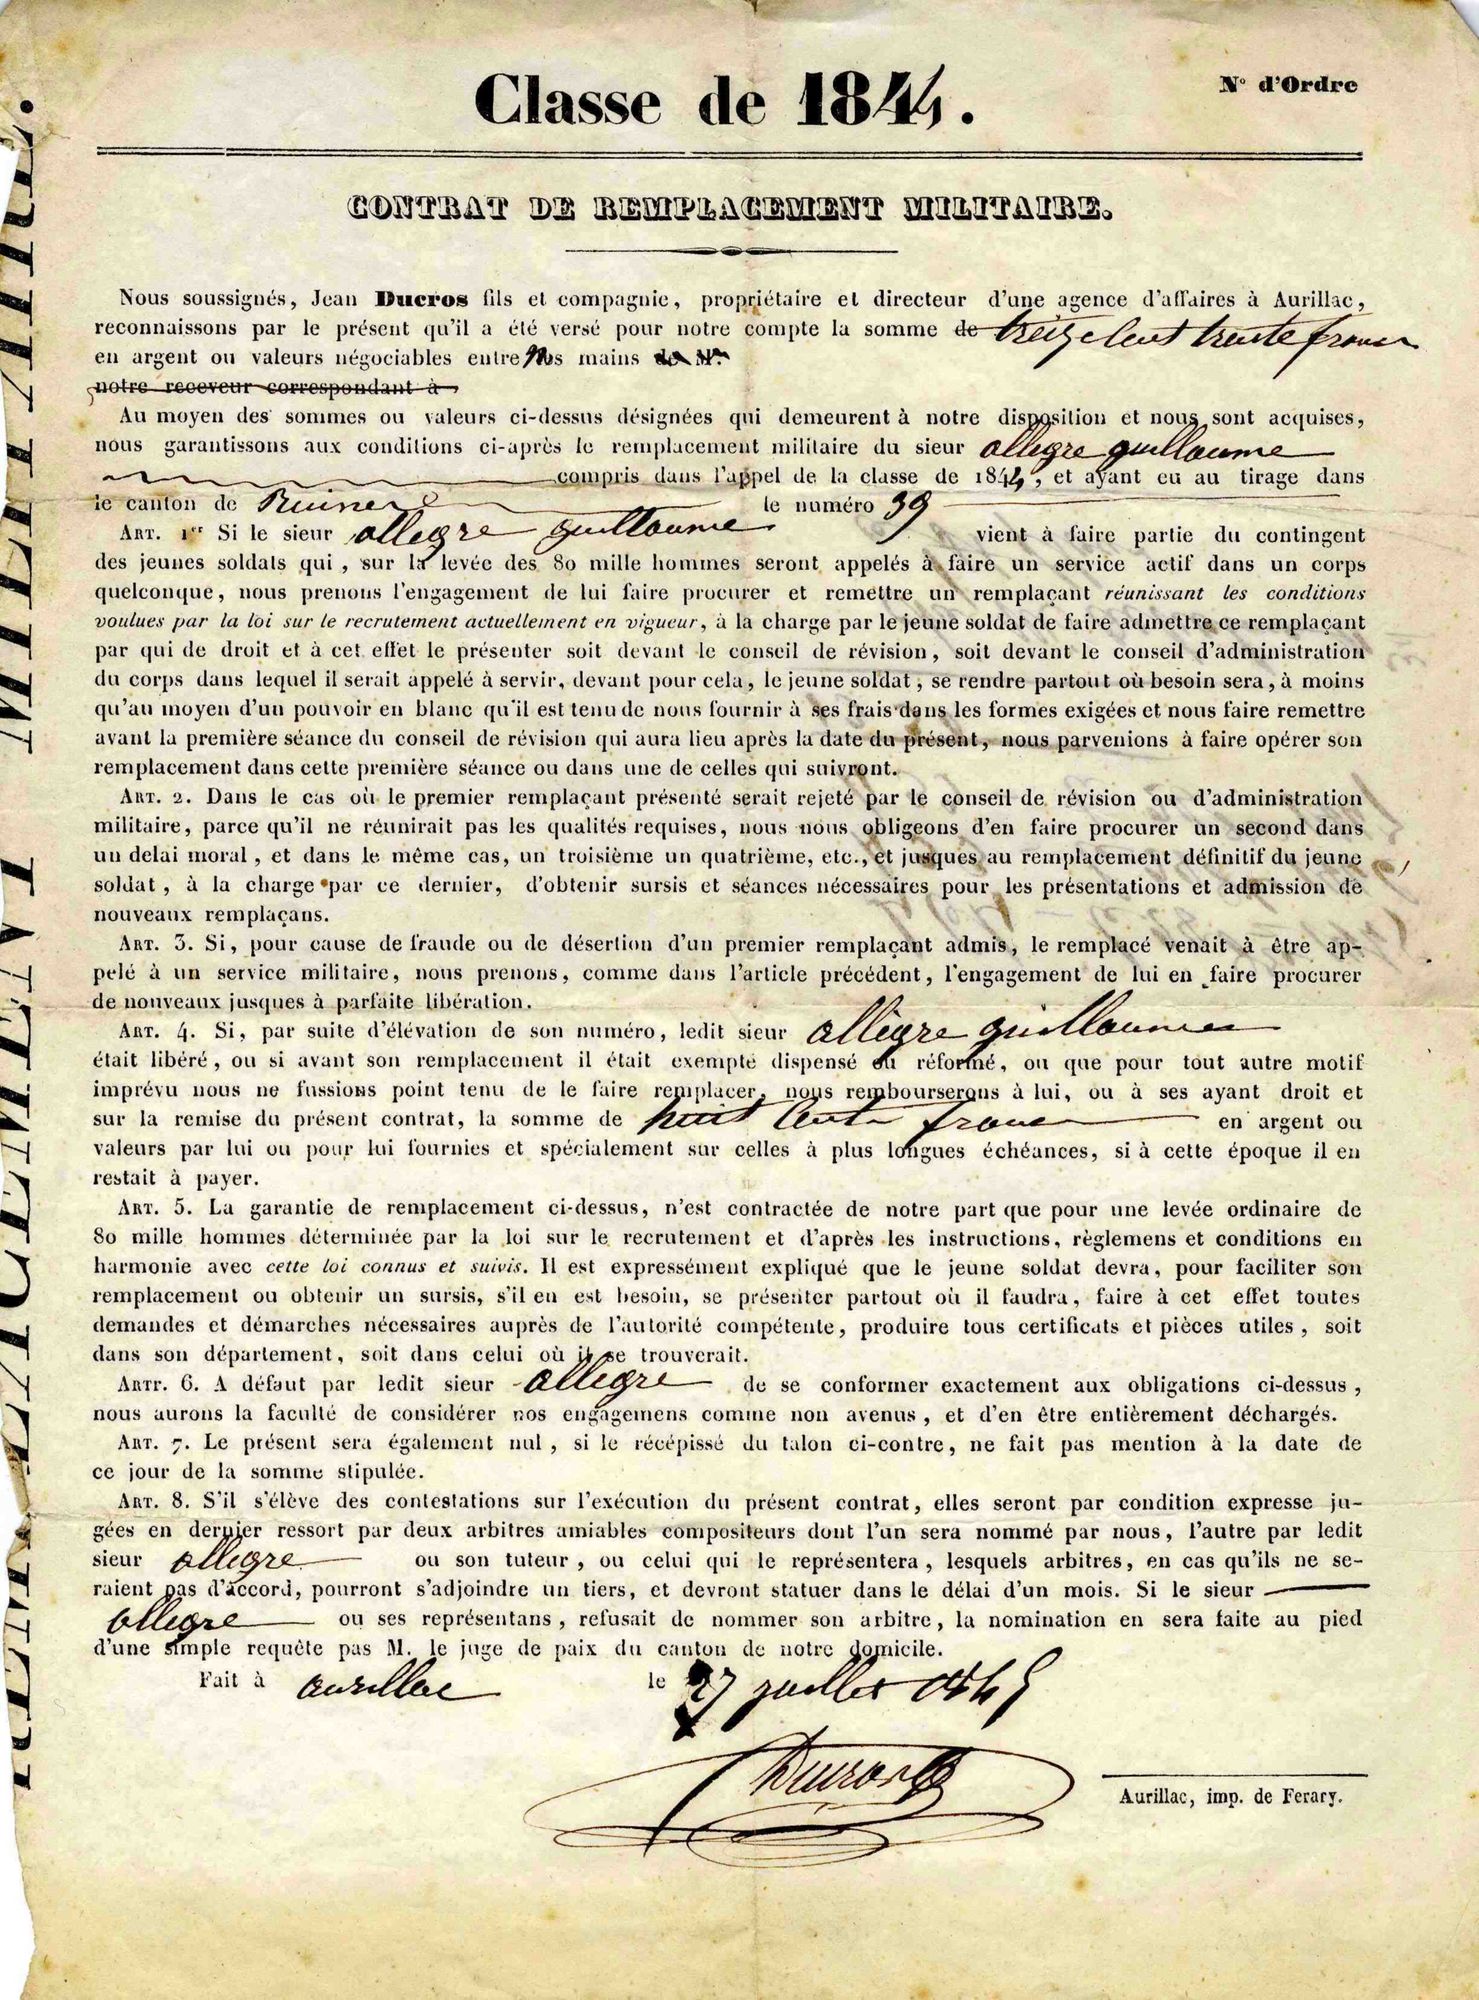 Classe de 1844.
N° d'Ordre
CONTRAT DE REMPLACEMENT MILITAIRE.
Nous soussignés, Jean Ducros fils et compagnie, propriétaire et directeur d'une agence d'affaires à Aurillac,
reconnaissons par le présent qu'il a été versé pour notre compte la somme de treize cent trente francs
en argent ou valeurs négociables entre nos mains de Mr
notre receveur correspondant à
Au moyen des sommes ou valeurs ci-dessus désignées qui demeurent à notre disposition et nous sont acquises,
nous garantissons aux conditions ci-après le remplacement militaire du sieur allegre guillaume
compris dans l'appel de la classe de 1844, et ayant eu au tirage dans
le canton de Ruines le numéro 39
ART. 1er Si le sieur allegre guillaume vient à faire partie du contingent
des jeunes soldats qui, sur la levée des 80 mille hommes seront appelés à faire un service actif dans un corps
quelconque, nous prenons l'engagement de lui faire procurer et remettre un remplaçant réunissant les conditions
voulues par la loi sur le recrutement actuellement en vigueur, à la charge par le jeune soldat de faire admettre ce remplaçant
par qui de droit et à cet effet le présenter soit devant le conseil de révision, soit devant le conseil d'administration
du corps dans lequel il serait appelé à servir, devant pour cela, le jeune soldat, se rendre partout où besoin sera, à moins
qu'au moyen d'un pouvoir en blanc qu'il est tenu de nous fournir à ses frais dans les formes exigées et nous faire remettre
avant la première séance du conseil de révision qui aura lieu après la date du présent, nous parvenions à faire opérer son
remplacement dans cette première séance ou dans une de celles qui suivront.
ART. 2. Dans le cas où le premier remplaçant présenté serait rejeté par le conseil de révision ou d'administration
militaire, parce qu'il ne réunirait pas les qualités requises, nous nous obligeons d'en faire procurer un second dans
un delai moral, et dans le même cas, un troisième un quatrième, etc., et jusques au remplacement définitif du jeune
soldat, à la charge par ce dernier, d'obtenir sursis et séances nécessaires pour les présentations et admission de
nouveaux remplaçans.
ART. 3. Si, pour cause de fraude ou de désertion d'un premier remplaçant admis, le remplacé venait à être ap-
pelé à un service militaire, nous prenons, comme dans l'article précédent, l'engagement de lui en faire procurer
de nouveaux jusques à parfaite libération.
ART. 4. Si, par suite d'élévation de son numéro, ledit sieur allegre guillaume
était libéré, ou si avant son remplacement il était exempté dispensé ou réformé, ou que pour tout autre motif
imprévu nous ne fussions point tenu de le faire remplacer, nous rembourserons à lui, ou à ses ayant droit et
sur la remise du présent contrat, la somme de huit cents francs en argent ou
valeurs par lui ou pour lui fournies et spécialement sur celles à plus longues échéances, si à cette époque il en
restait à payer.
ART. 5. La garantie de remplacement ci-dessus, n'est contractée de notre part que pour une levée ordinaire de
80 mille hommes déterminée par la loi sur le recrutement et d'après les instructions, règlemens et conditions en
harmonie avec cette loi connus et suivis. Il est expressément expliqué que le jeune soldat devra, pour faciliter son
remplacement ou obtenir un sursis, s'il en est besoin, se présenter partout où il faudra, faire à cet effet toutes
demandes et démarches nécessaires auprès de l'autorité compétente, produire tous certificats et pièces utiles, soit
dans son département, soit dans celui où il se trouverait.
ARTR. 6. A défaut par ledit sieur allegre de se conformer exactement aux obligations ci-dessus,
nous aurons la faculté de considérer nos engagemens comme non avenus, et d'en être entièrement déchargés.
ART. 7. Le présent sera également nul, si le récépissé du talon ci-contre, ne fait pas mention à la date de
ce jour de la somme stipulée.
ART. 8. S'il s'élève des contestations sur l'exécution du présent contrat, elles seront par condition expresse ju-
gées en dernier ressort par deux arbitres amiables compositeurs dont l'un sera nommé par nous, l'autre par ledit
sieur allegre ou son tuteur, ou celui qui le représentera, lesquels arbitres, en cas qu'ils ne se-
raient pas d'accord, pourront s'adjoindre un tiers, et devront statuer dans le délai d'un mois. Si le sieur
allegre ou ses représentans, refusait de nommer son arbitre, la nomination en sera faite au pied
d'une simple requête pas M. le juge de paix du canton de notre domicile.
Fait à aurillac le 27 juillet 1845
Ducros
Aurillac, imp. de Ferary.